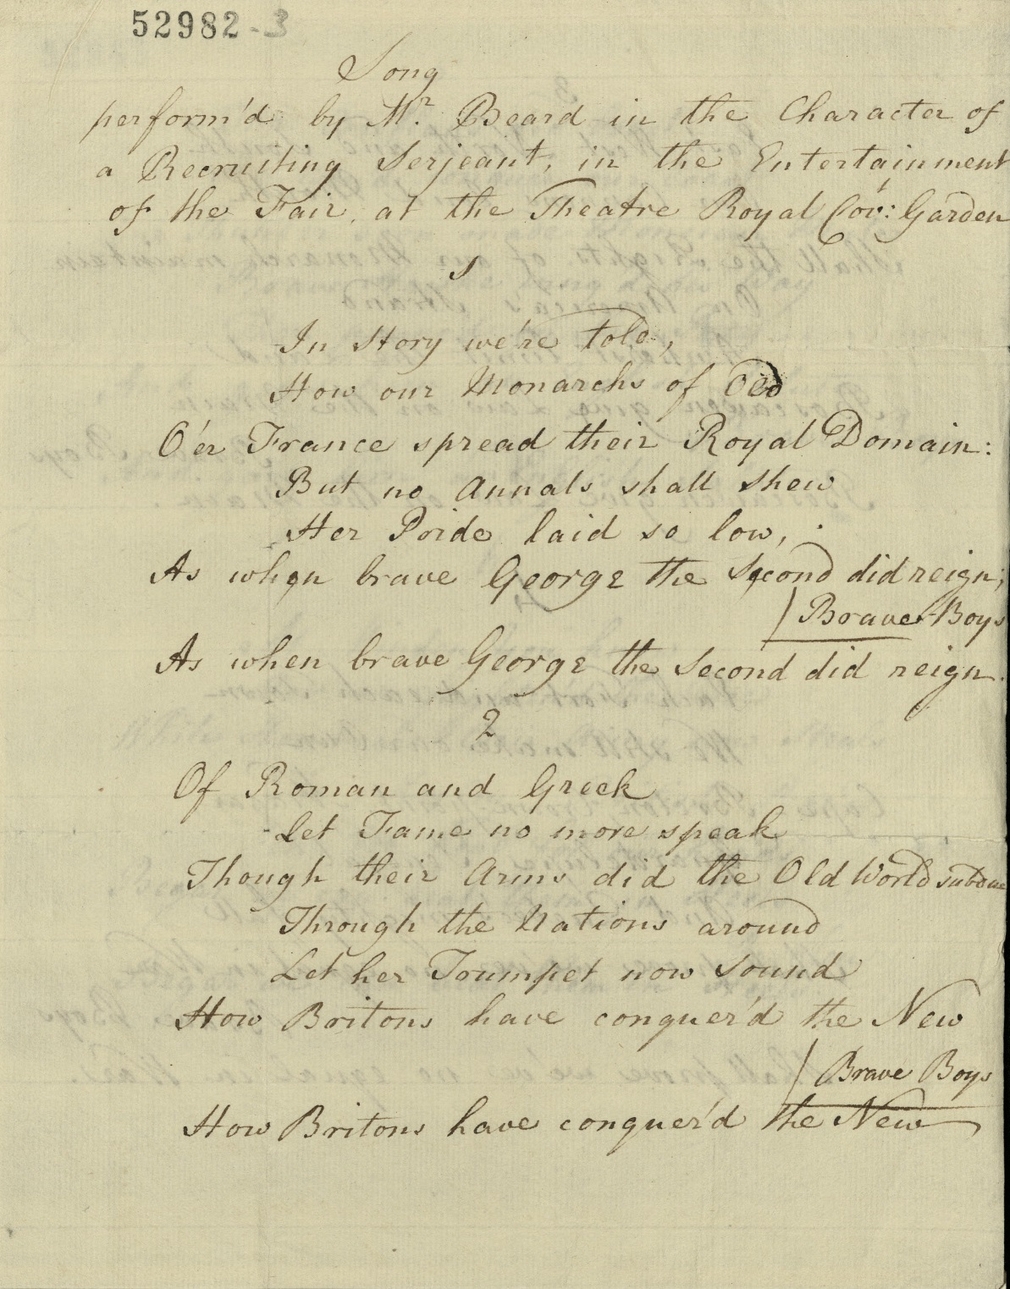 52982-3
Song
perform'd by Mr. Beard in the Character of
a Recruiting Serjeant, in the Entertainment
of the Fair, at the Theatre Royal Cov: Garden
1
In Story we're told,
How our Monarchs of Old
O'er France spread their Royal Domain:
But no Annals shall shew
Her Pride laid so low,
As when brave George the Second did reign;
Brave Boys
As when brave George the Second did reign.
2
Of Roman and Greek
Let Fame no more speak
Though their Arms did the Old World subdue
Through the Nations around
Let her Trumpet now sound
How Britons have conquer'd the New
Brave Boys
How Britons have conquer'd the New